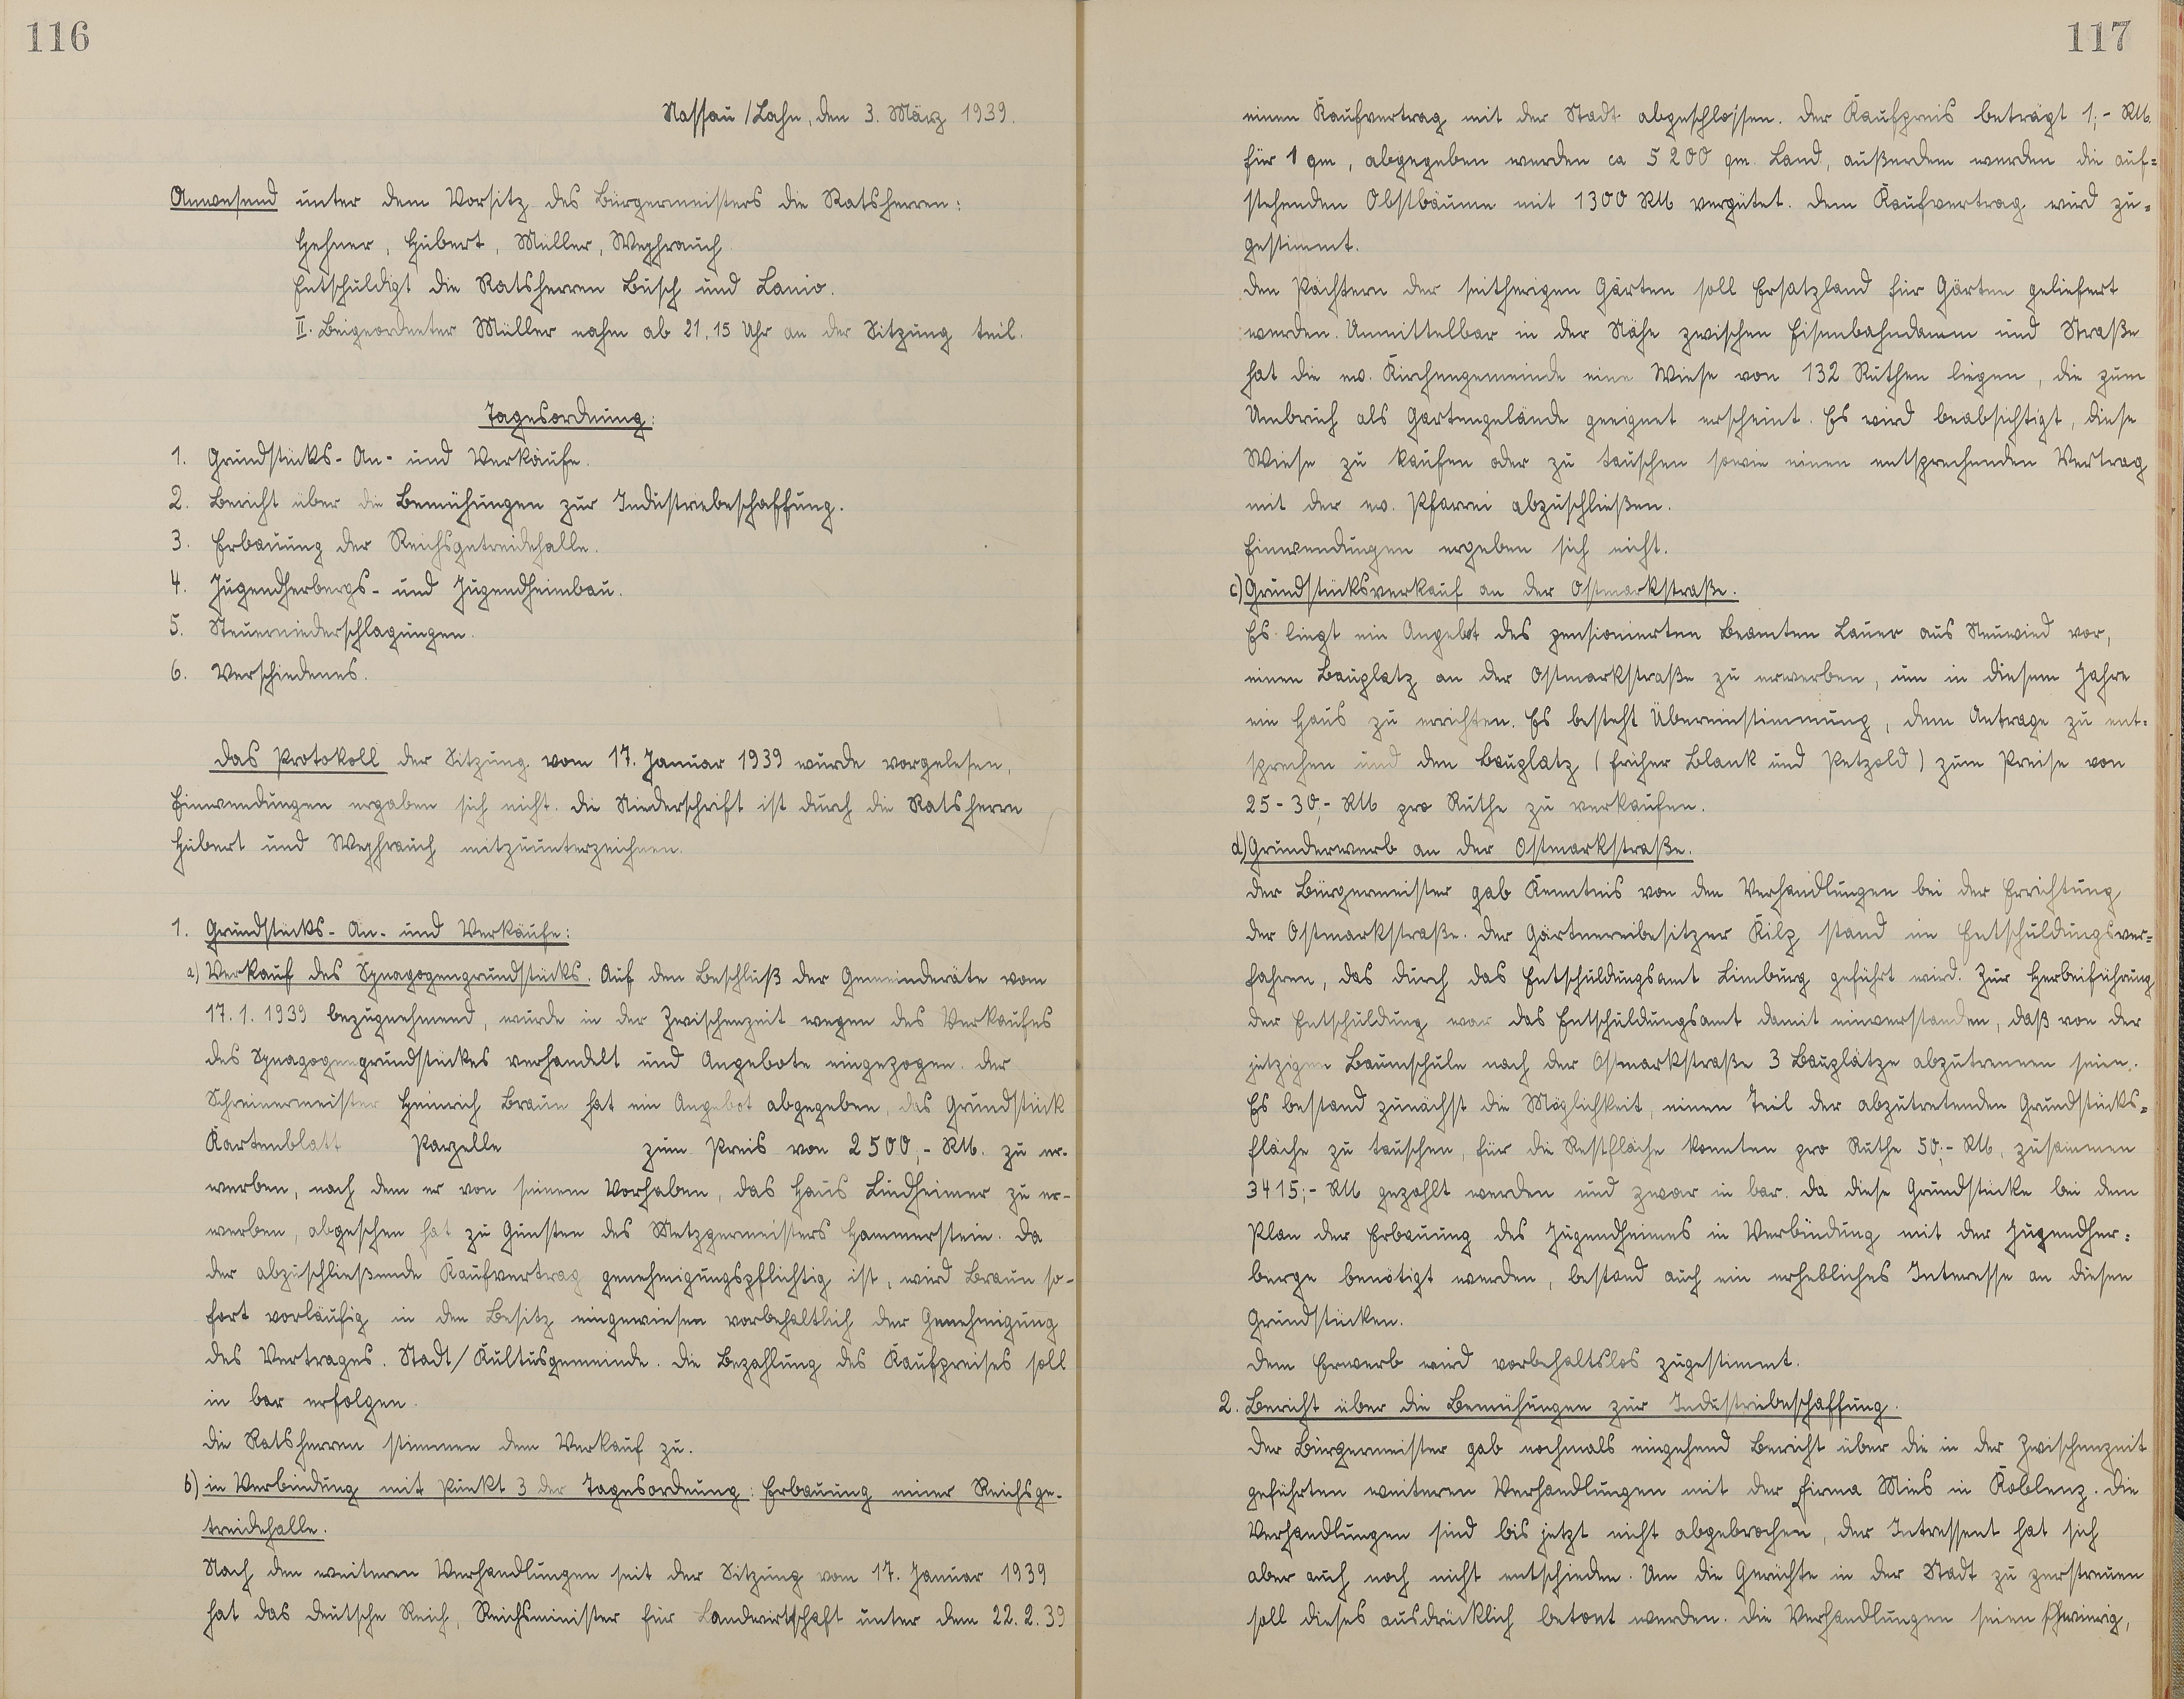 116
Nassau/Lahn, den 3. März 1939.
Anwesend unter dem Vorsitz des Bürgermeisters die Ratsherren:
Hehner, Hubert, Müller, Weyhrauch.
Entschuldigt die Ratsherren Busch und Lanio.
II. Beigeordneter Müller nahm ab 21.15 Uhr an der Sitzung teil.
Tagesordnung:
1. Grundstücks-An- und Verkäufe.
2. Bericht über die Bemühungen zur Industriebeschaffung.
3. Erbauung der Reichsgetreidehalle.
4. Jugendherbergs- und Jugendheimbau.
5. Steuerniederschlagungen.
6. Verschiedenes.
Das Protokoll der Sitzung vom 17. Januar 1939 wurde vorgelesen,
Einwendungen ergaben sich nicht. Die Niederschrift ist durch die Ratsherrn
Hubert und Weyhrauch mitzuunterzeichnen.
1. Grundstücks-An- und Verkäufe:
a) Verkauf des Synagogengrundstücks. Auf den Beschluß der Gemeinderäte vom
17.1.1939 bezugnehmend, wurde in der Zwischenzeit wegen des Verkaufes
des Synagogengrundstückes verhandelt und Angebote eingezogen. Der
Schreinermeister Heinrich Braun hat ein Angebot abgegeben, das Grundstück
Kartenblatt Parzelle zum Preis von 2500,- RM. zu er-
werben, nach dem er von seinem Vorhaben, das Haus Lindheimer zu er-
werben, abgesehen hat zu Gunsten des Metzgermeisters Hammerstein. Da
der abzuschließende Kaufvertrag genehmigungspflichtig ist, wird Braun so-
fort vorläufig in den Besitz eingewiesen vorbehaltlich der Genehmigung
des Vertrages. Stadt/Kultusgemeinde. Die Bezahlung des Kaufpreises soll
in bar erfolgen.
Die Ratsherren stimmen dem Verkauf zu.
b) in Verbindung mit Punkt 3 der Tagesordnung: Erbauung einer Reichsge-
treidehalle.
Nach den weiteren Verhandlungen seit der Sitzung vom 17. Januar 1939
hat das Deutsche Reich, Reichsminister für Landwirtschaft unter dem 22.2.39
117
einen Kaufvertrag mit der Stadt abgeschlossen. Der Kaufpreis beträgt 1,- RM.
für 1 qm, abgegeben werden ca 5200 qm. Land, außerdem werden die auf=
stehenden Obstbäume mit 1300 RM vergütet. Dem Kaufvertrag wird zu=
gestimmt.
Den Pächtern der seitherigen Gärten soll Ersatzland für Gärten geliefert
werden. Unmittelbar in der Nähe zwischen Eisenbahndamm und Straße
hat die ev. Kirchengemeinde eine Wiese von 132 Ruthen liegen, die zum
Umbruch als Gartengelände geeignet erscheint. Es wird beabsichtigt, diese
Wiese zu kaufen oder zu tauschen sowie einen entsprechenden Vertrag
mit der ev. Pfarrei abzuschließen.
Einwendungen ergeben sich nicht.
c) Grundstücksverkauf an der Ostmarkstraße.
Es liegt ein Angebot des pensionierten Beamten Lauer aus Neuwied vor,
einen Bauplatz an der Ostmarkstraße zu erwerben, um in diesem Jahre
ein Haus zu errichten. Es besteht Übereinstimmung, dem Antrage zu ent=
sprechen und den Bauplatz (früher Blank und Petzold) zum Preise von
25-30,- RM pro Ruthe zu verkaufen.
d) Grunderwerb an der Ostmarkstraße.
Der Bürgermeister gab Kenntnis von den Verhandlungen bei der Errichtung
der Ostmarkstraße. Der Gärtnereibesitzer Kilp stand im Entschuldungsver=
fahren, das durch das Entschuldungsamt Limburg geführt wird. Zur Herbeiführung
der Entschuldung war das Entschuldungsamt damit einverstanden, daß von der
jetzigen Baumschule nach der Ostmarkstraße 3 Bauplätze abzutrennen seien.
Es bestand zunächst die Möglichkeit, einen Teil der abzutretenden Grundstücks=
fläche zu tauschen, für die Restfläche konnten pro Ruthe 50,- RM, zusammen
3415,- RM gezahlt werden und zwar in bar. Da diese Grundstücke bei dem
Plan der Erbauung des Jugendheimes in Verbindung mit der Jugendher=
berge benötigt werden, bestand auch ein erhebliches Interesse an diesen
Grundstücken.
Dem Erwerb wird vorbehaltslos zugestimmt.
2. Bericht über die Bemühungen zur Industriebeschaffung.
Der Bürgermeister gab nochmals eingehend Bericht über die in der Zwischenzeit
geführten weiteren Verhandlungen mit der Firma Mies in Koblenz. Die
Verhandlungen sind bis jetzt nicht abgebrochen, der Intressent hat sich
aber auch noch nicht entschieden. Um die Gerüchte in der Stadt zu zerstreuen
soll dieses ausdrücklich betont werden. Die Verhandlungen seien schwierig,